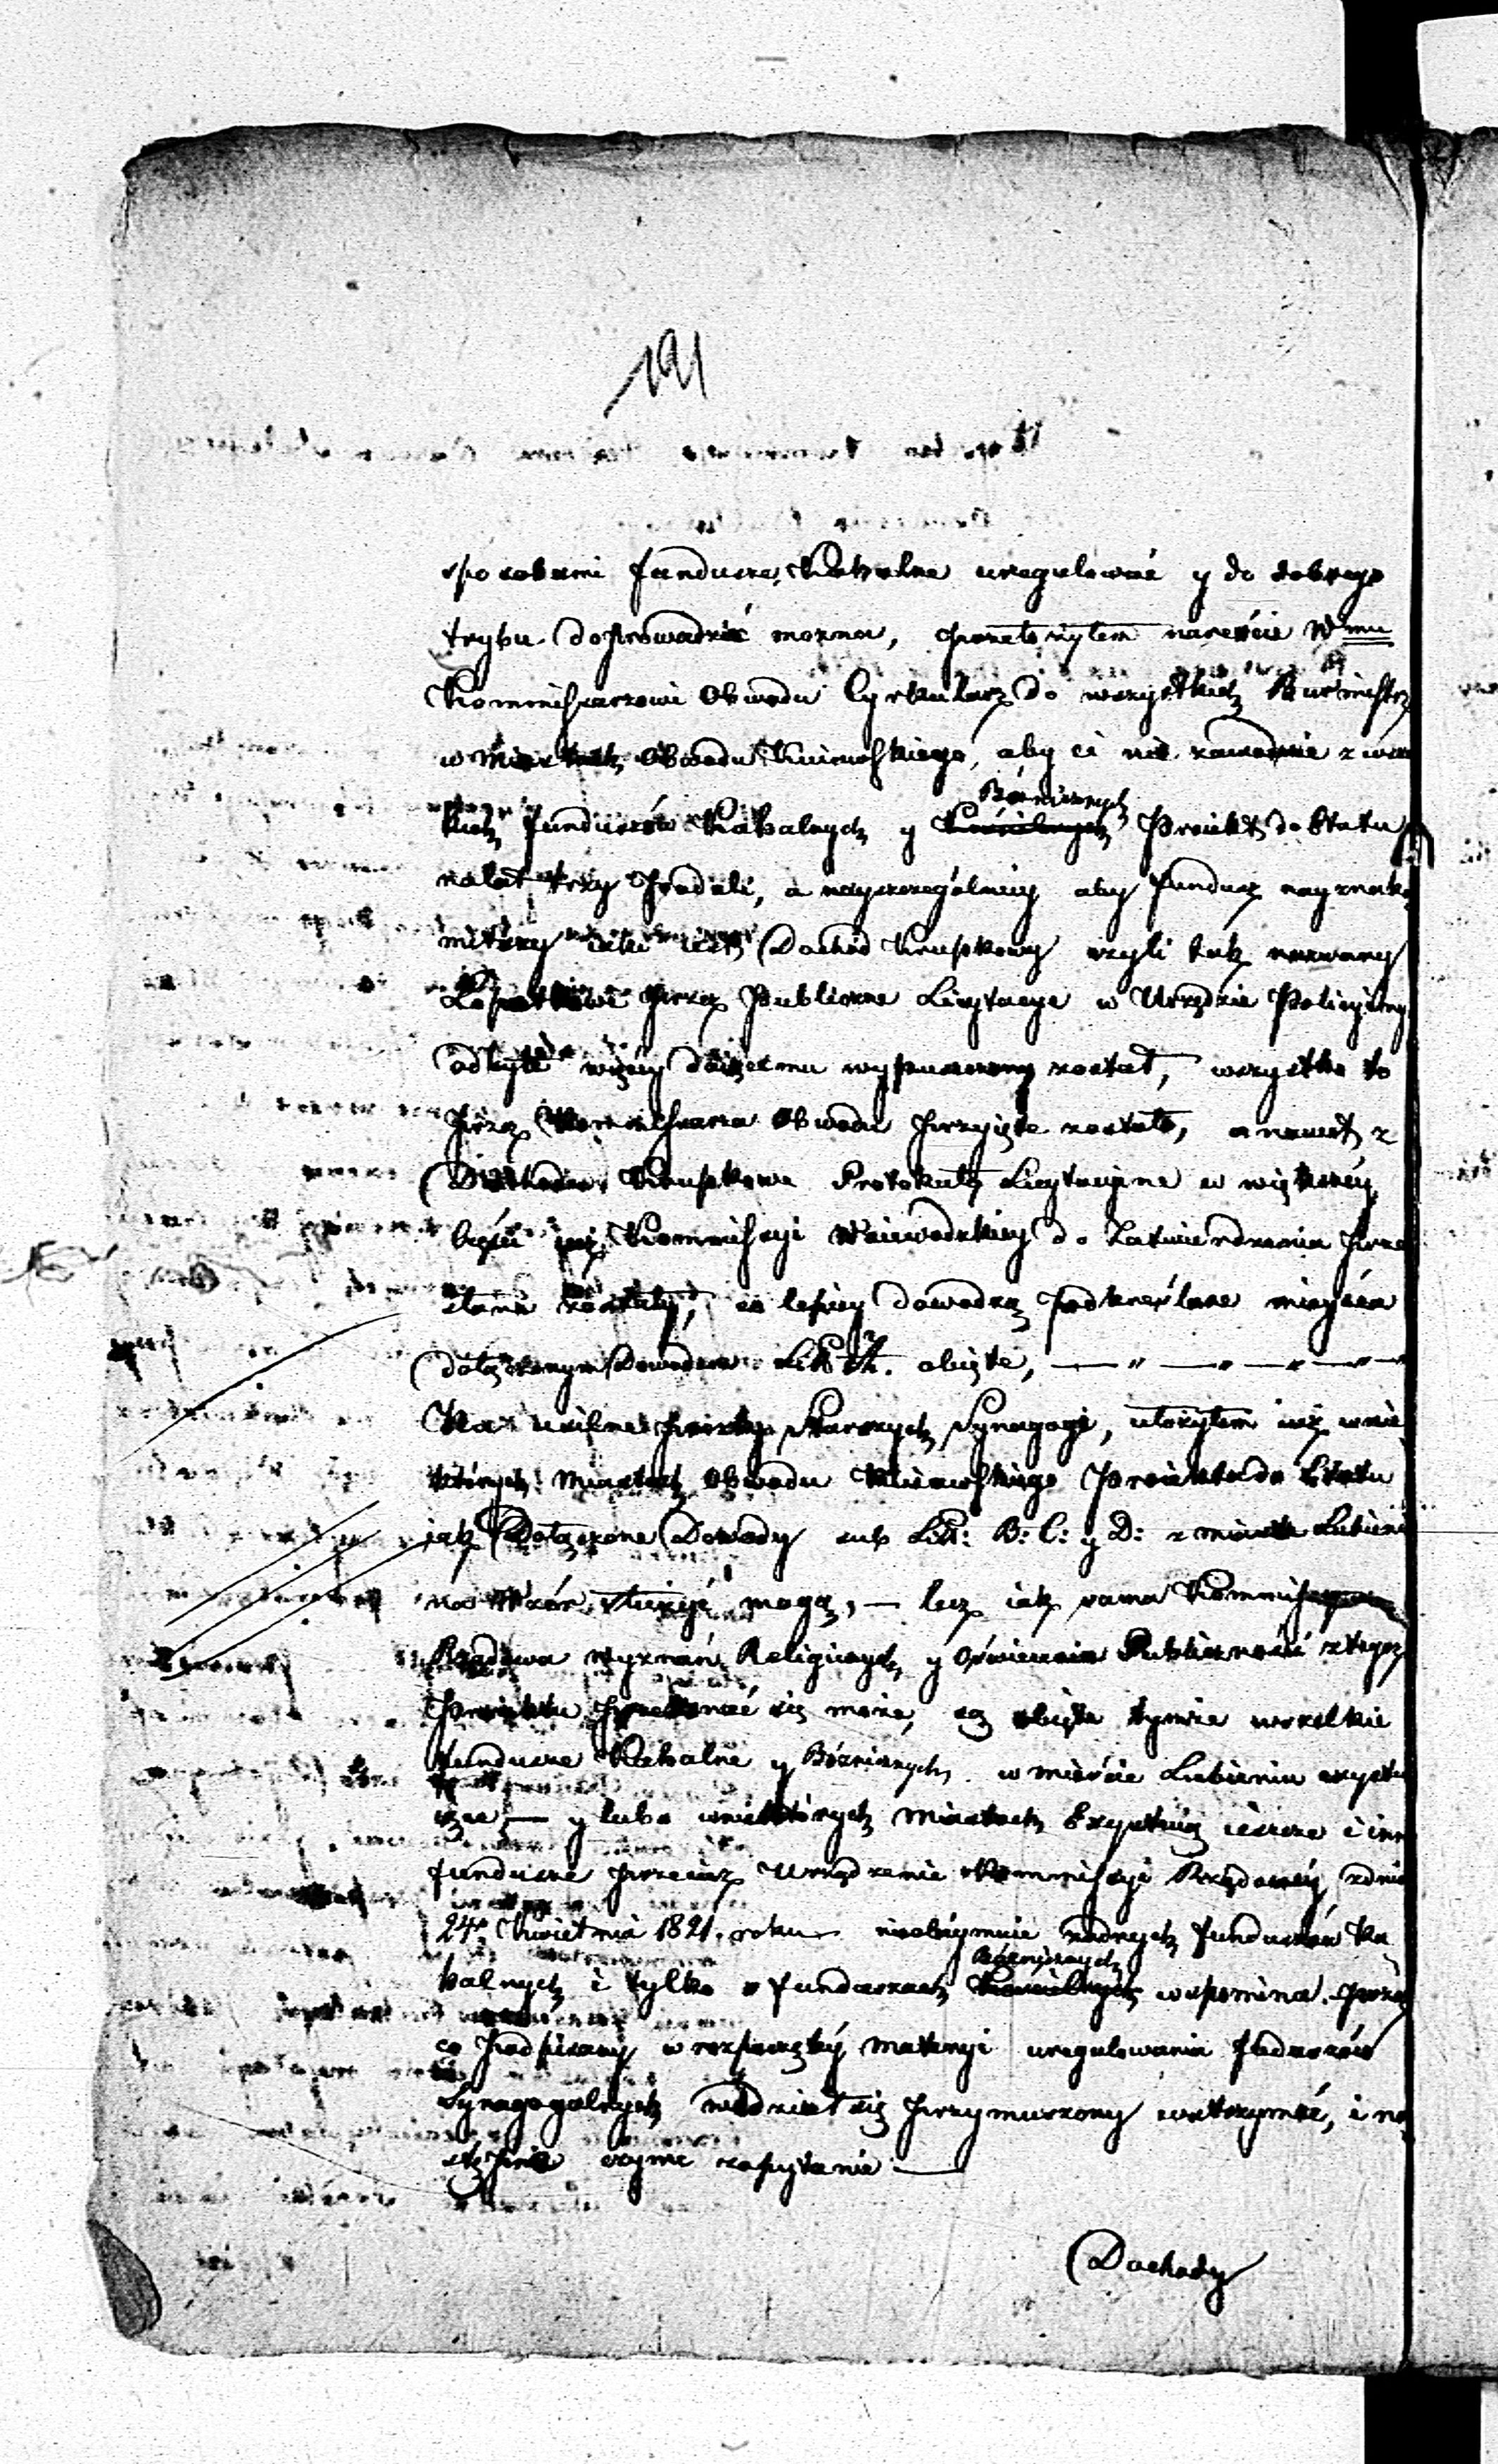 191
sposobami fundusze Kahalne uregulować y do dobrego
trybu doprowadzić mozna, przełożyłem nareście Wmu
Kommissarzowi Obwodu Cyrkularz do wszystkich Burmistrz
w Miastach Obwodu Kuiawskiego, aby ci nie zawodnie z wszel
kich funduszów Kahalnych y Bóżniczych Proiekt do Etatu
na lat trzy podali, a nayszczegolniey aby fundusz nayznako
mitszy iaki iest Dochód Krupkowy czyli tak nazwany
przez Publiczne Licytacye w Urzędzie Policyinym
odbyte więcey daiącemu wypuszczony został, wszystko to
przez Kommissarza Obwodu przyięte zostało, a nawet z
Dochodów Krupkowe Protokuły Licytacyine w większey
części iuż Kommissyi Woiewodzkiey do Zatwierdzenia prze
słane zostały, co lepiey dowodzą podkreślone mieysca
dołączonym Dowodem Litt. A. obięte, — " — " — " — " —
Na usilne prozby Starszych Synagogi, ułożyłem iuż w nie
których Miastach Obwodu Kuiawskiego Proiekta do Etatu
iak Dołączone Dowody sub Litt: B: C: y D: z miasta Lubienia
na Wzór służyć mogą, — lecz iak sama Kommissya
Rządowa Wyznań Religiinych y Oświecenia Publicznego z tego
Proiektu przekonać się może, są obięte tymże wszelkie
fundusze Kahalne y Bóżniczych w mieście Lubieniu exystu
iące — y lubo w niektórych Miastach Exystuią ieszcze i inne
fundusze przecież Urządzenie Kommissyi Rządowey z dnia
24. Kwietnia 1821. roku nieobeymuie żadnych funduszów Ka
halnych i tylko o funduszach Bóżniczych wspomina. przez
co Podpisany w rozpoczętey materyi uregulowania fuduszów
Synagogalnych widział się przymuszony wstrzymać, i na
stępnie czyni zapytanie —
Dochody